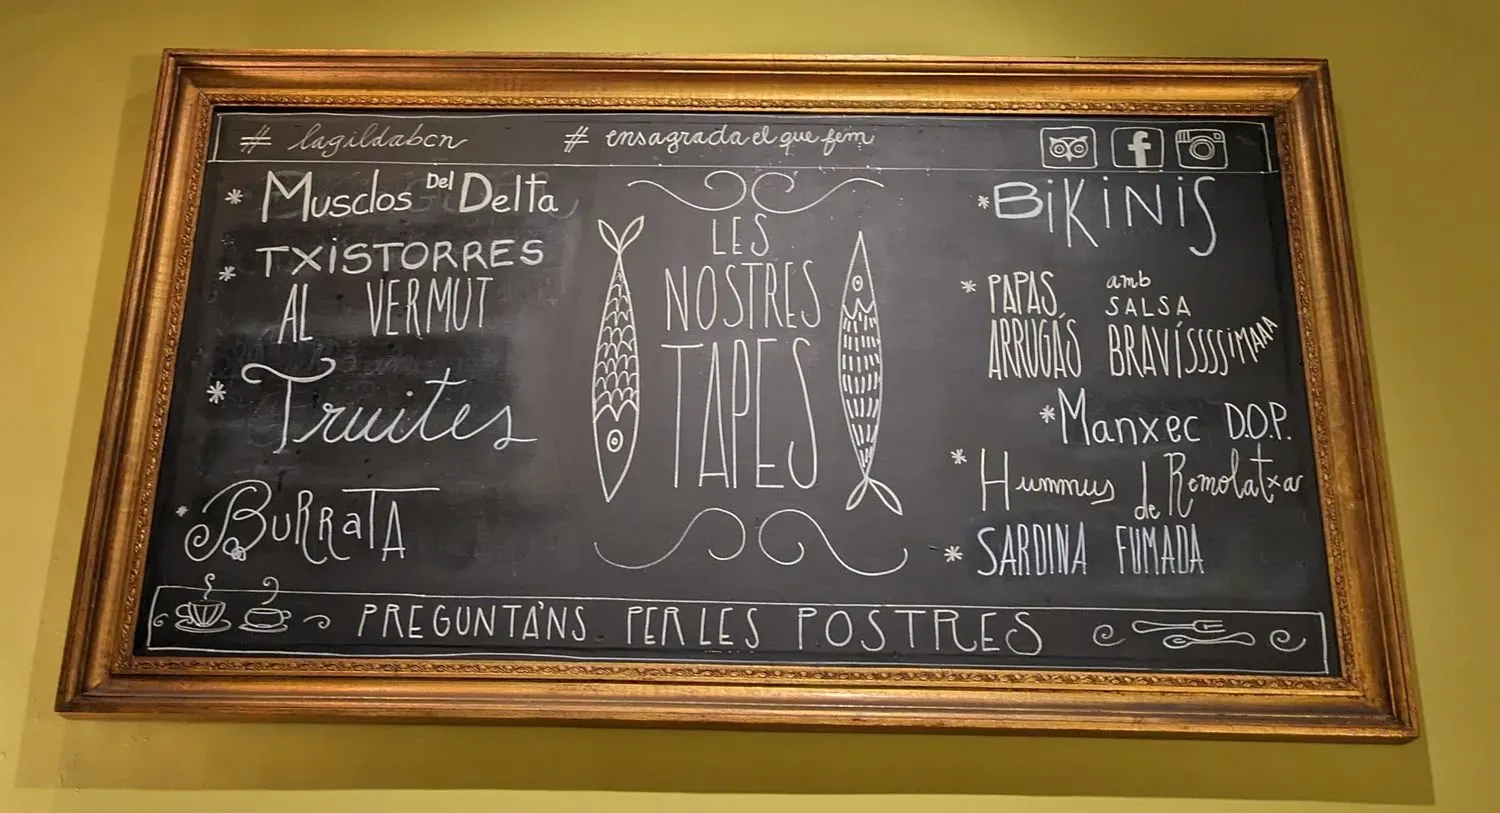 # lagildabcn # ensagrada el que fem
* Musclos Del Delta
* TXISTORRES
AL VERMUT
* Truites
* BURRATA
LES
NOSTRES
TAPES
* BiKiNiS
* PAPAS amb
SALSA
ARRUGÁS BRAVÍSSSSiMAAA
* Manxec D.O.P.
* Hummus de Remolatxa
* SARDINA FUMADA
PREGUNTA'NS PER LES POSTRES